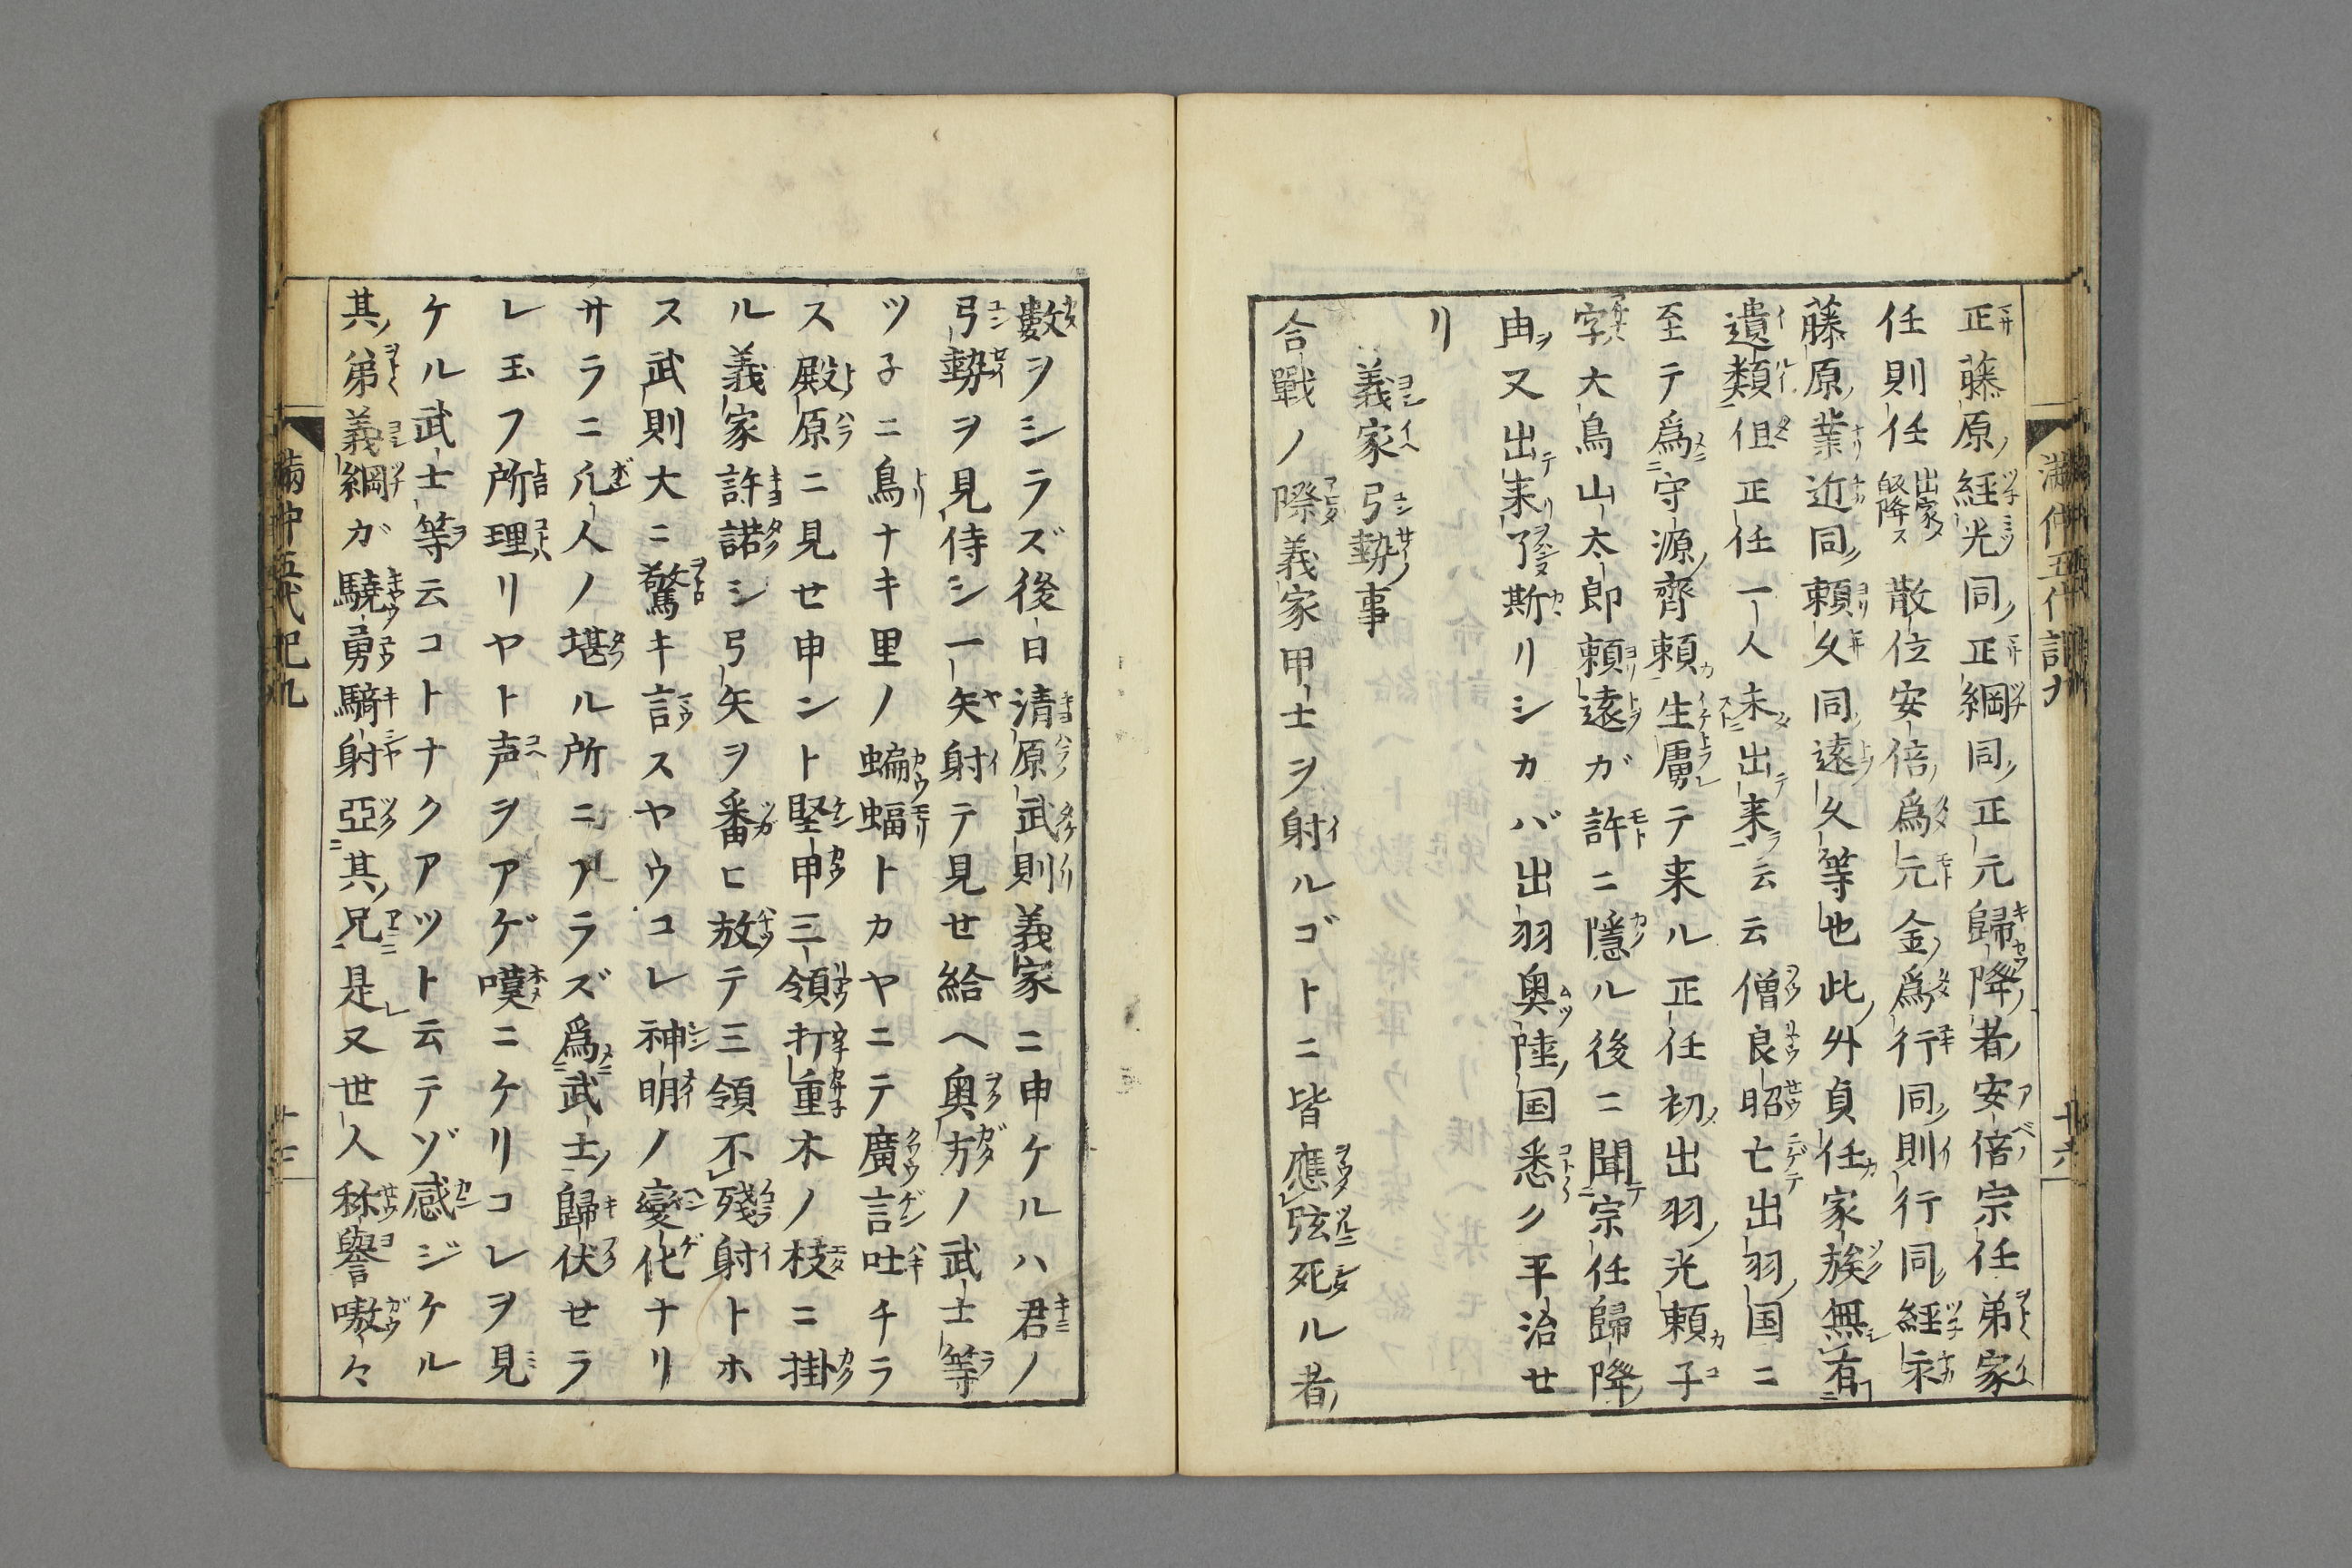 正藤原経光同正綱同正元歸降者安倍宗任弟家
任則任出家皈降ス散位安倍爲元金爲行同則行同経永
藤原業近同頼久同遠久等也此外貞任家族無有
遺類但正任一人未出来云云僧良昭亡出羽国ニ
至テ爲守源齊頼生虜テ来ル正任初出羽光頼子
字大鳥山太郎頼遠ガ許ニ隱ル後ニ聞宗任歸降
由又出来了斯リシカバ出羽奥陸国悉ク平治セ
リ
義家弓勢事
合戰ノ際義家甲士ヲ射ルゴトニ皆應弦死ル者
數ヲシラズ後日清原武則義家ニ申ケルハ君ノ
弓勢ヲ見侍シ一矢射テ見せ給へ奥方ノ武士等
ツ子ニ鳥ナキ里ノ蝙蝠トカヤニテ廣言吐チラ
ス殿原ニ見せ申ント堅申三領打重木ノ枝ニ掛
ル義家許諾シ弓矢ヲ番ヒ放テ三領不殘射トホ
ス武則大ニ驚キ言スヤウコレ神明ノ變化ナリ
サラニ凢人ノ堪ル所ニアラズ爲武士歸伏せラ
レ玉フ所理リヤト声ヲアゲ嘆ニケリコレヲ見
ケル武士等云コトナクアツト云テゾ感ジケル
其弟義綱ガ驍勇騎射亞其兄是又世人称譽嗷々